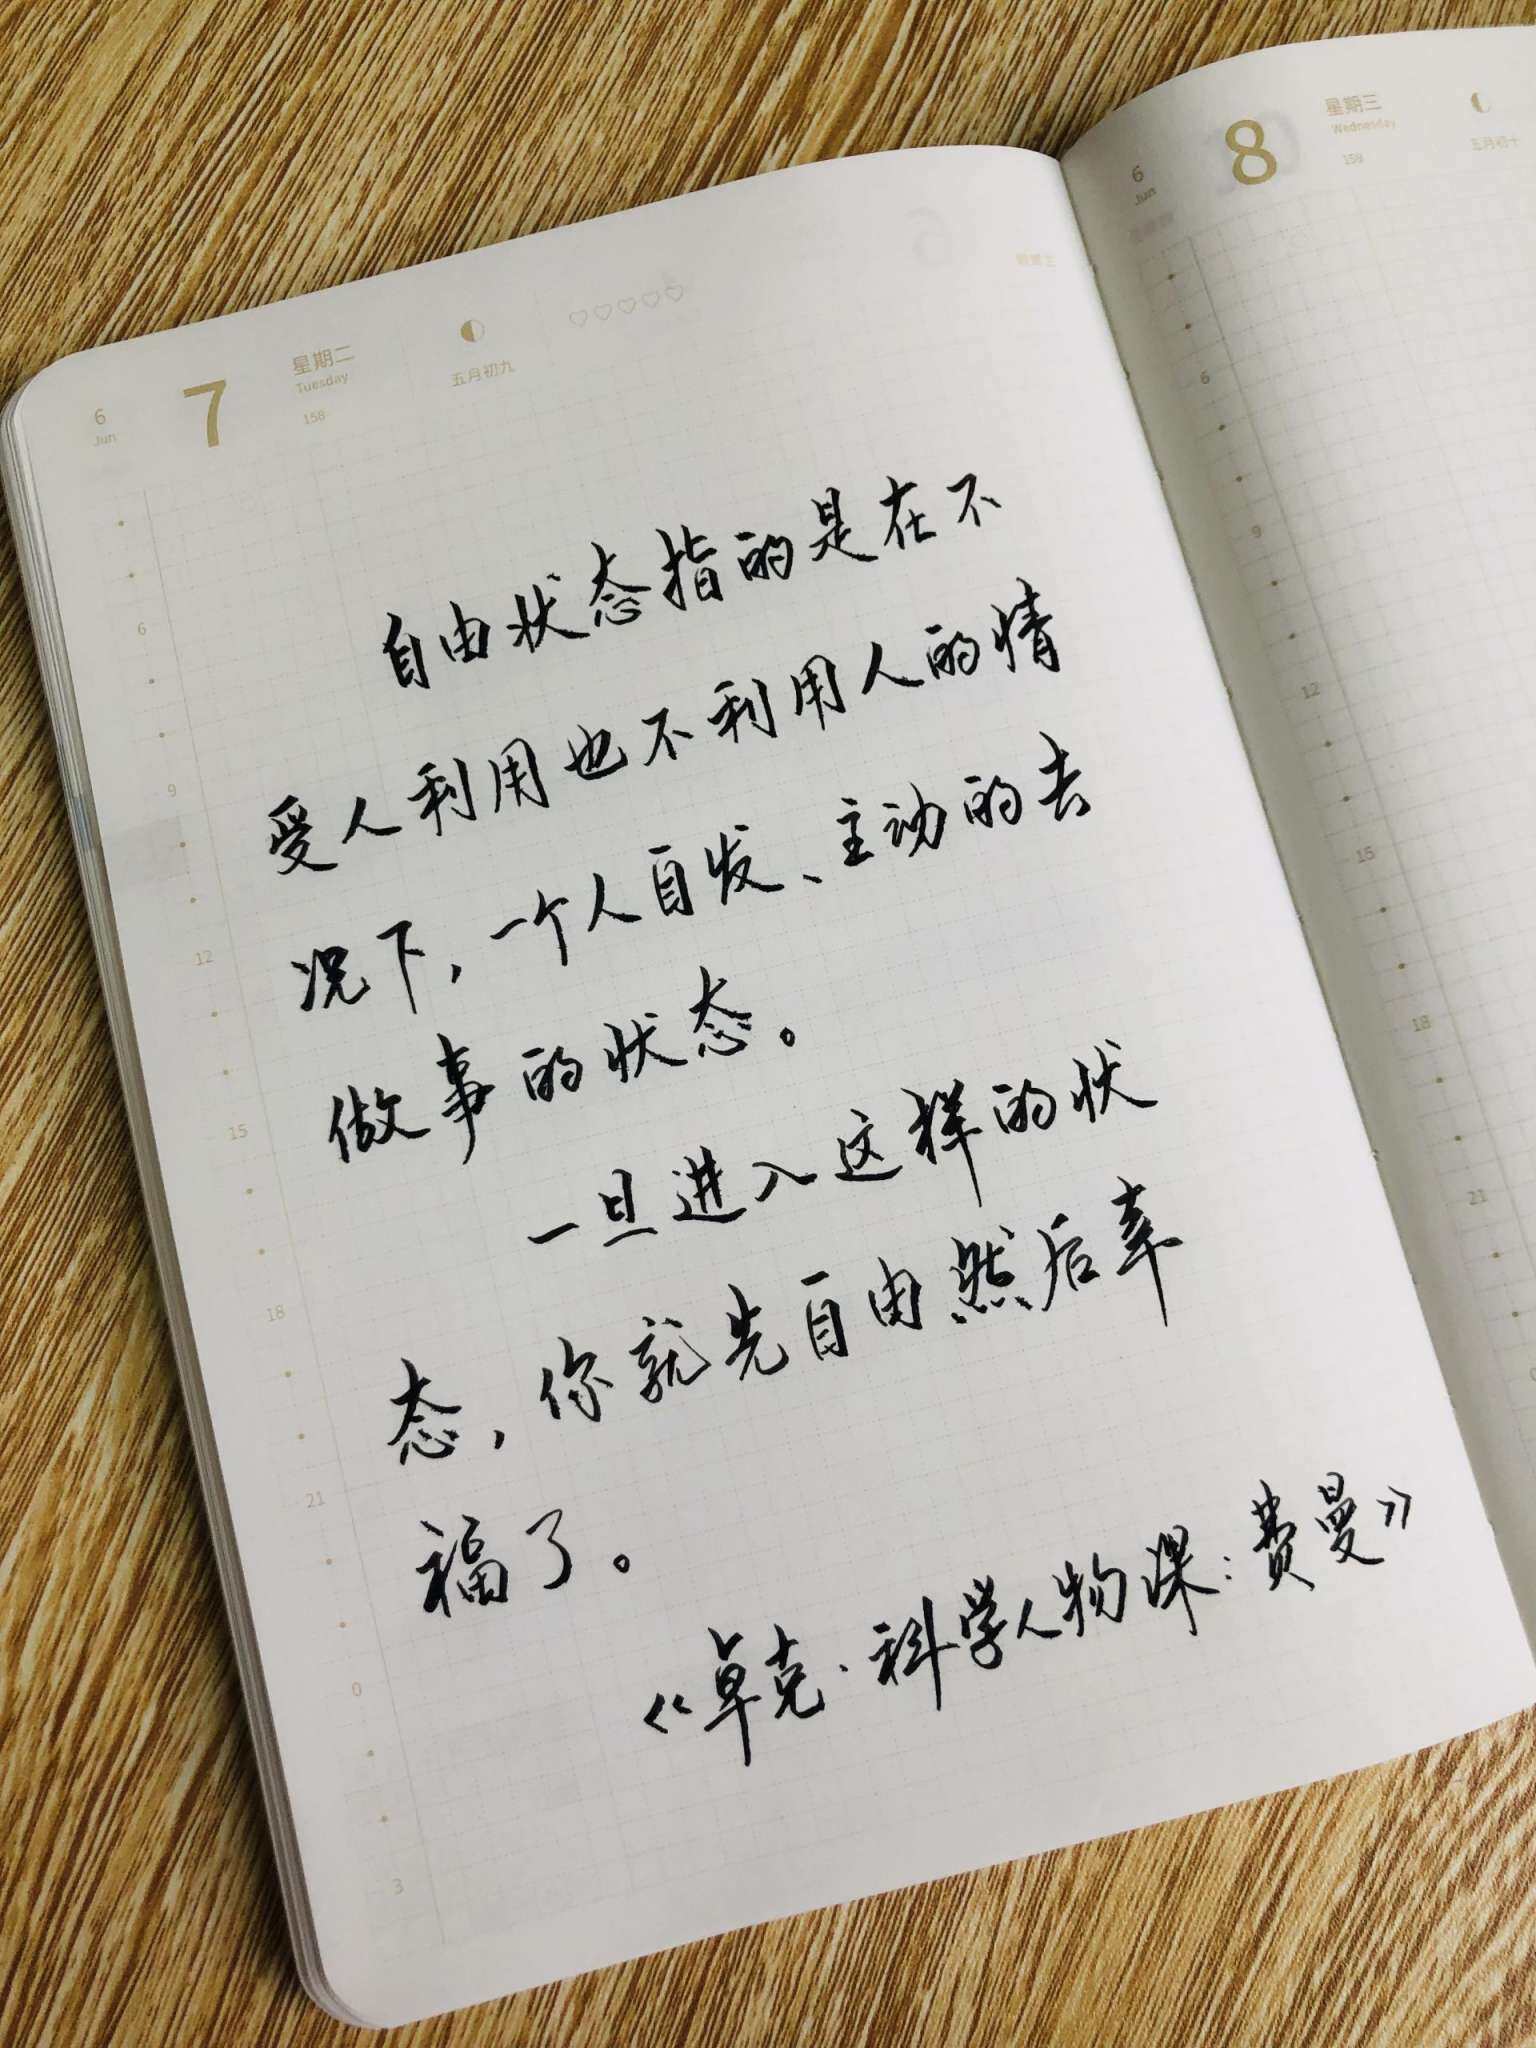 6
Jun
7
星期二
Tuesday
158
五月初九
自由状态指的是在不
受人利用也不利用人的情
况下，一个人自发、主动的去
做事的状态。
一旦进入这样的状
态，你就先自由然后幸
福了。
《卓克·科学人物课：费曼》
6
9
12
15
18
21
0
3
6
Jun
8
星期三
Wednesday
159
五月初十
6
9
12
15
18
21